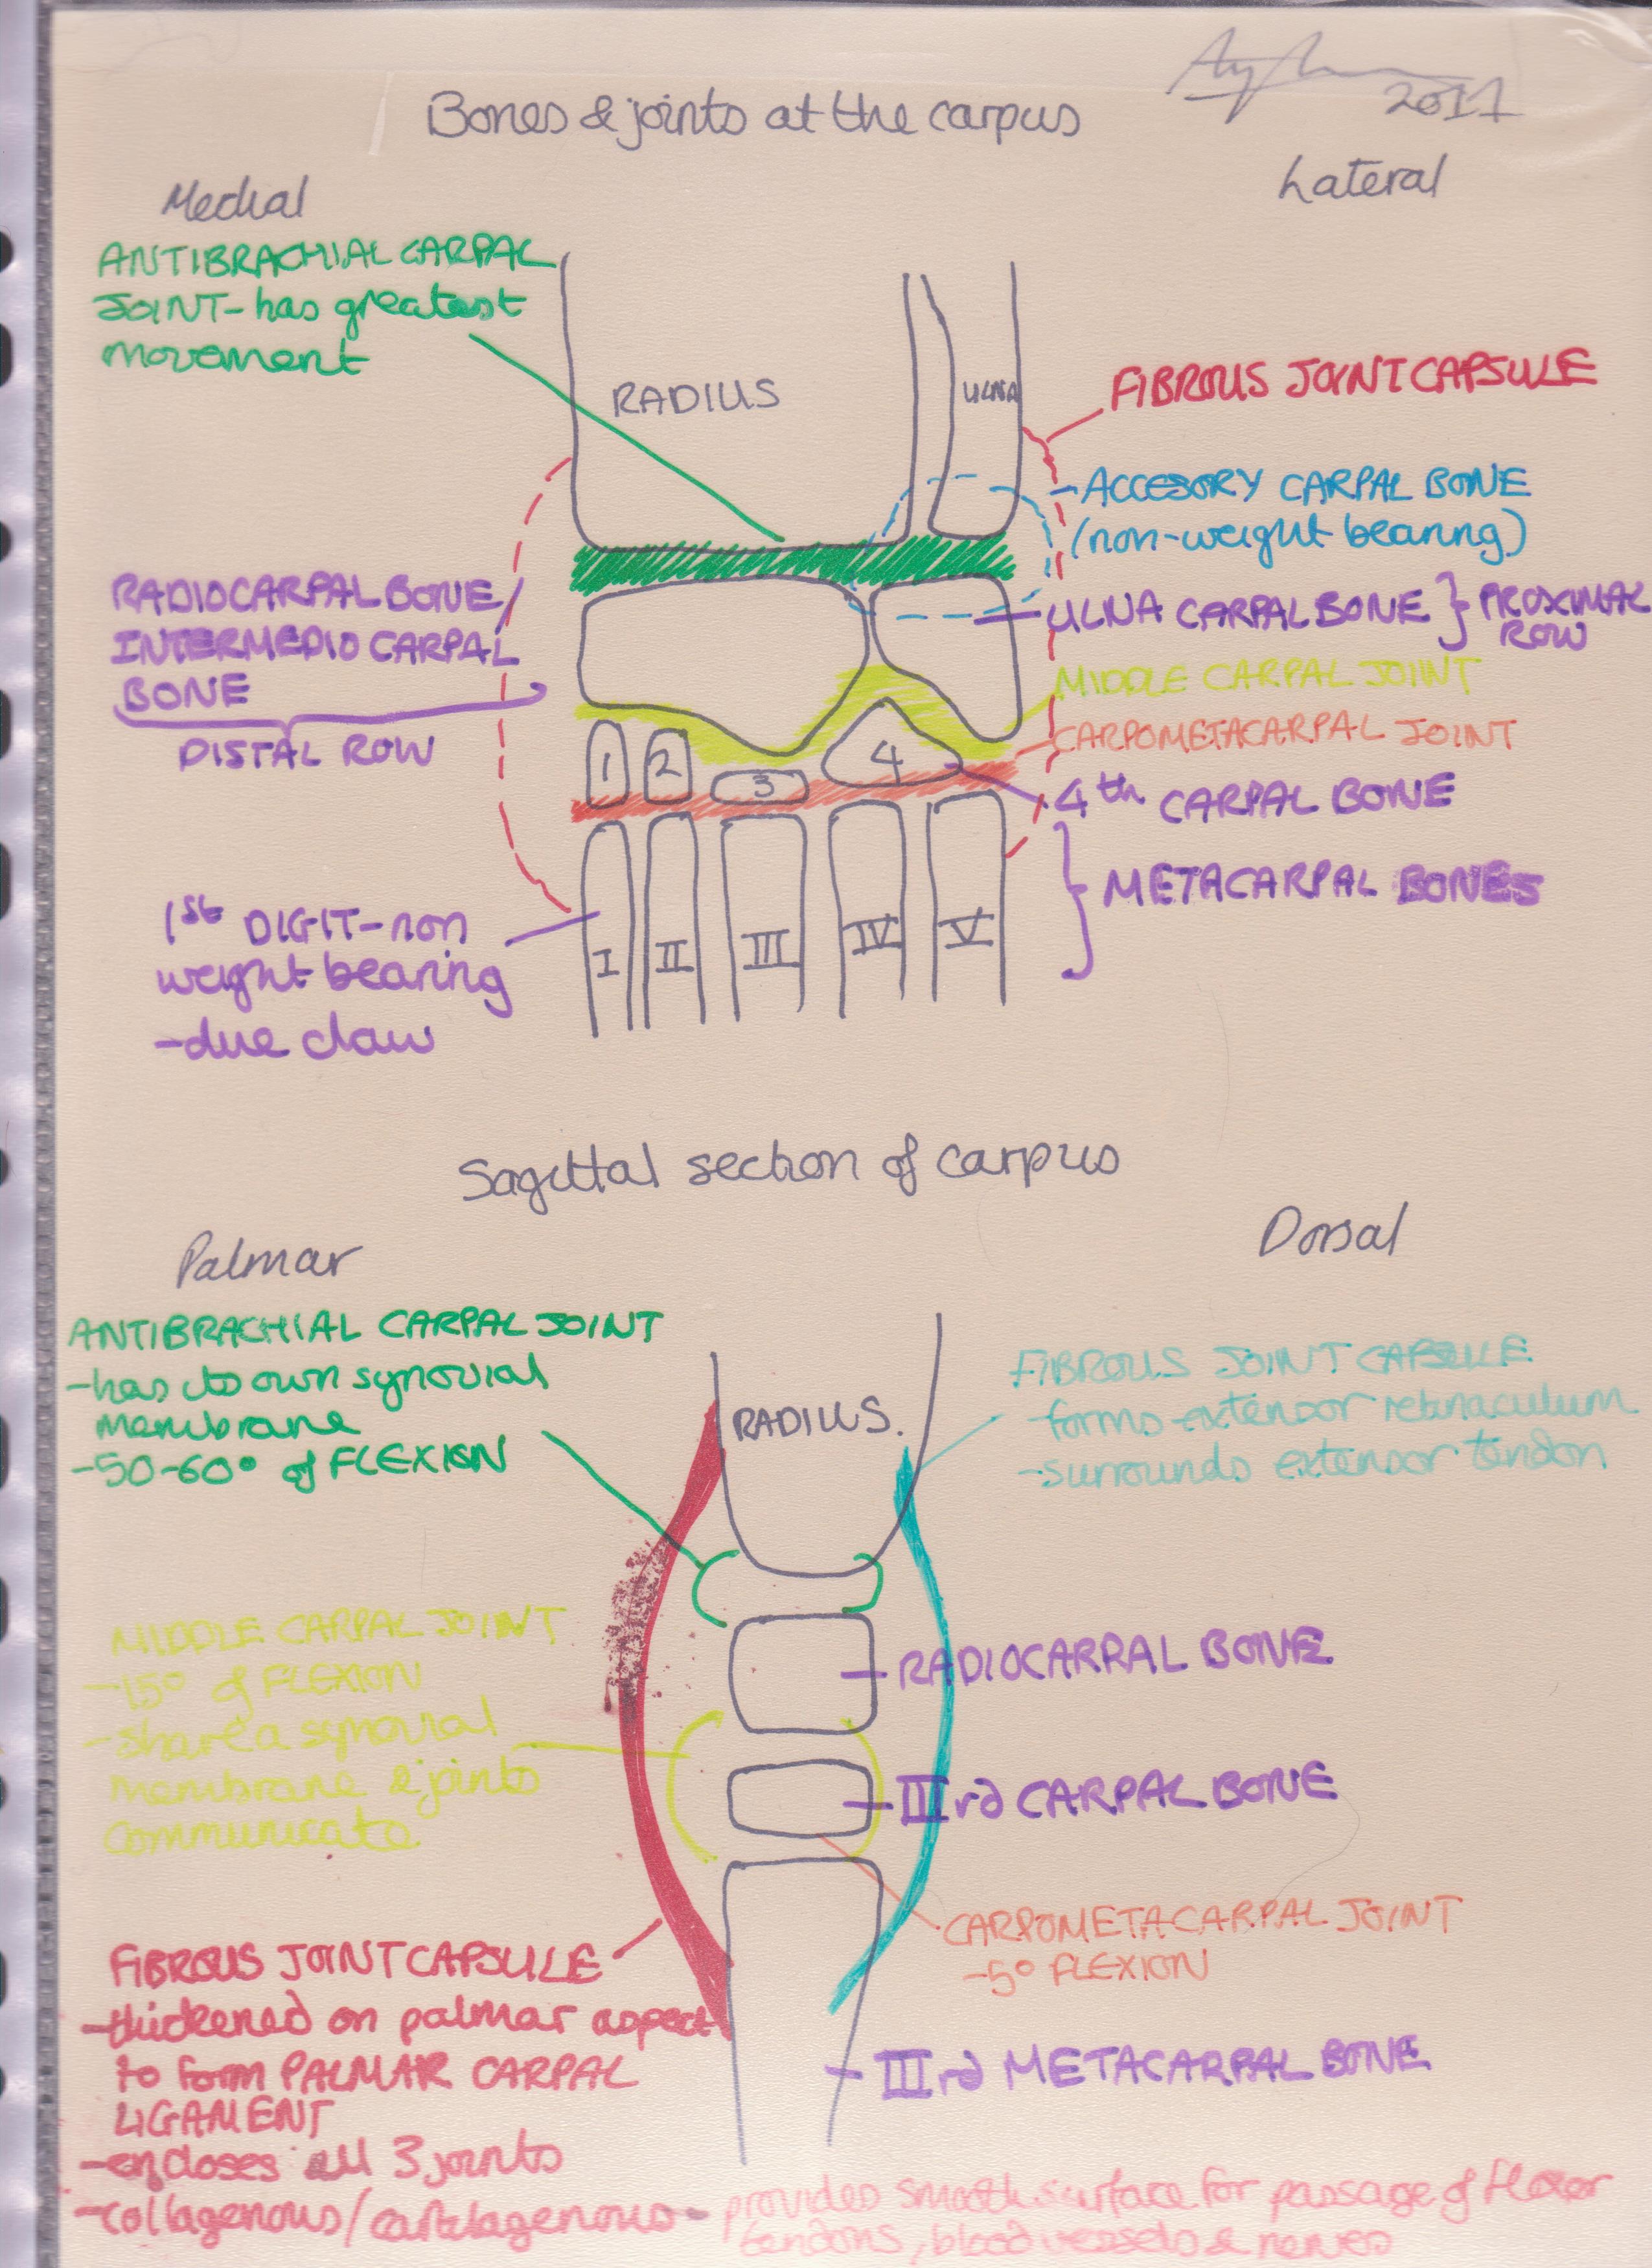 2011
Bones & joints at the carpus
Medial
Lateral
ANTIBRACHIAL CARPAL
JOINT - has greatest
movement
RADIUS
ULNA
FIBROUS JOINT CAPSULE
ACCESORY CARPAL BONE
(non-weight bearing)
RADIOCARPAL BONE
INTERMEDIO CARPAL
BONE
DISTAL ROW
ULNA CARPAL BONE
PROXIMAL
ROW
MIDDLE CARPAL JOINT
CARPOMETACARPAL JOINT
1 2 3 4
4th CARPAL BONE
METACARPAL BONES
1st DIGIT-non
weight bearing
-due claw
I II III IV V
Sagittal section of carpus
Palmar
Dorsal
ANTIBRACHIAL CARPAL JOINT
-has its own synovial
membrane
-50-60° of FLEXION
RADIUS.
FIBROUS JOINT CAPSULE
-forms extensor retinaculum
-surrounds extensor tendon
MIDDLE CARPAL JOINT
-15° of FLEXION
-share a synovial
membrane & joints
communicate
RADIOCARPAL BONE
IIIrd CARPAL BONE
CARPOMETACARPAL JOINT
-5° FLEXION
FIBROUS JOINT CAPSULE
-thickened on palmar aspect
to form PALMAR CARPAL
LIGAMENT
-encloses all 3 joints
-collagenous/cartilagenous - provides smooth surface for passage of flexor
tendons, blood vessels & nerves
IIIrd METACARPAL BONE